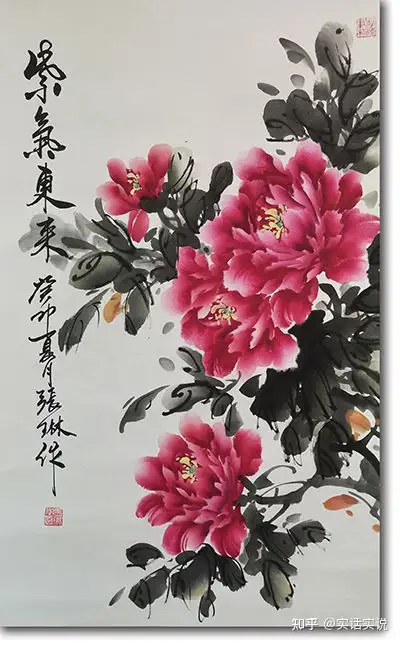 紫氣東来
癸卯夏月張琳作
知乎 @实话实说